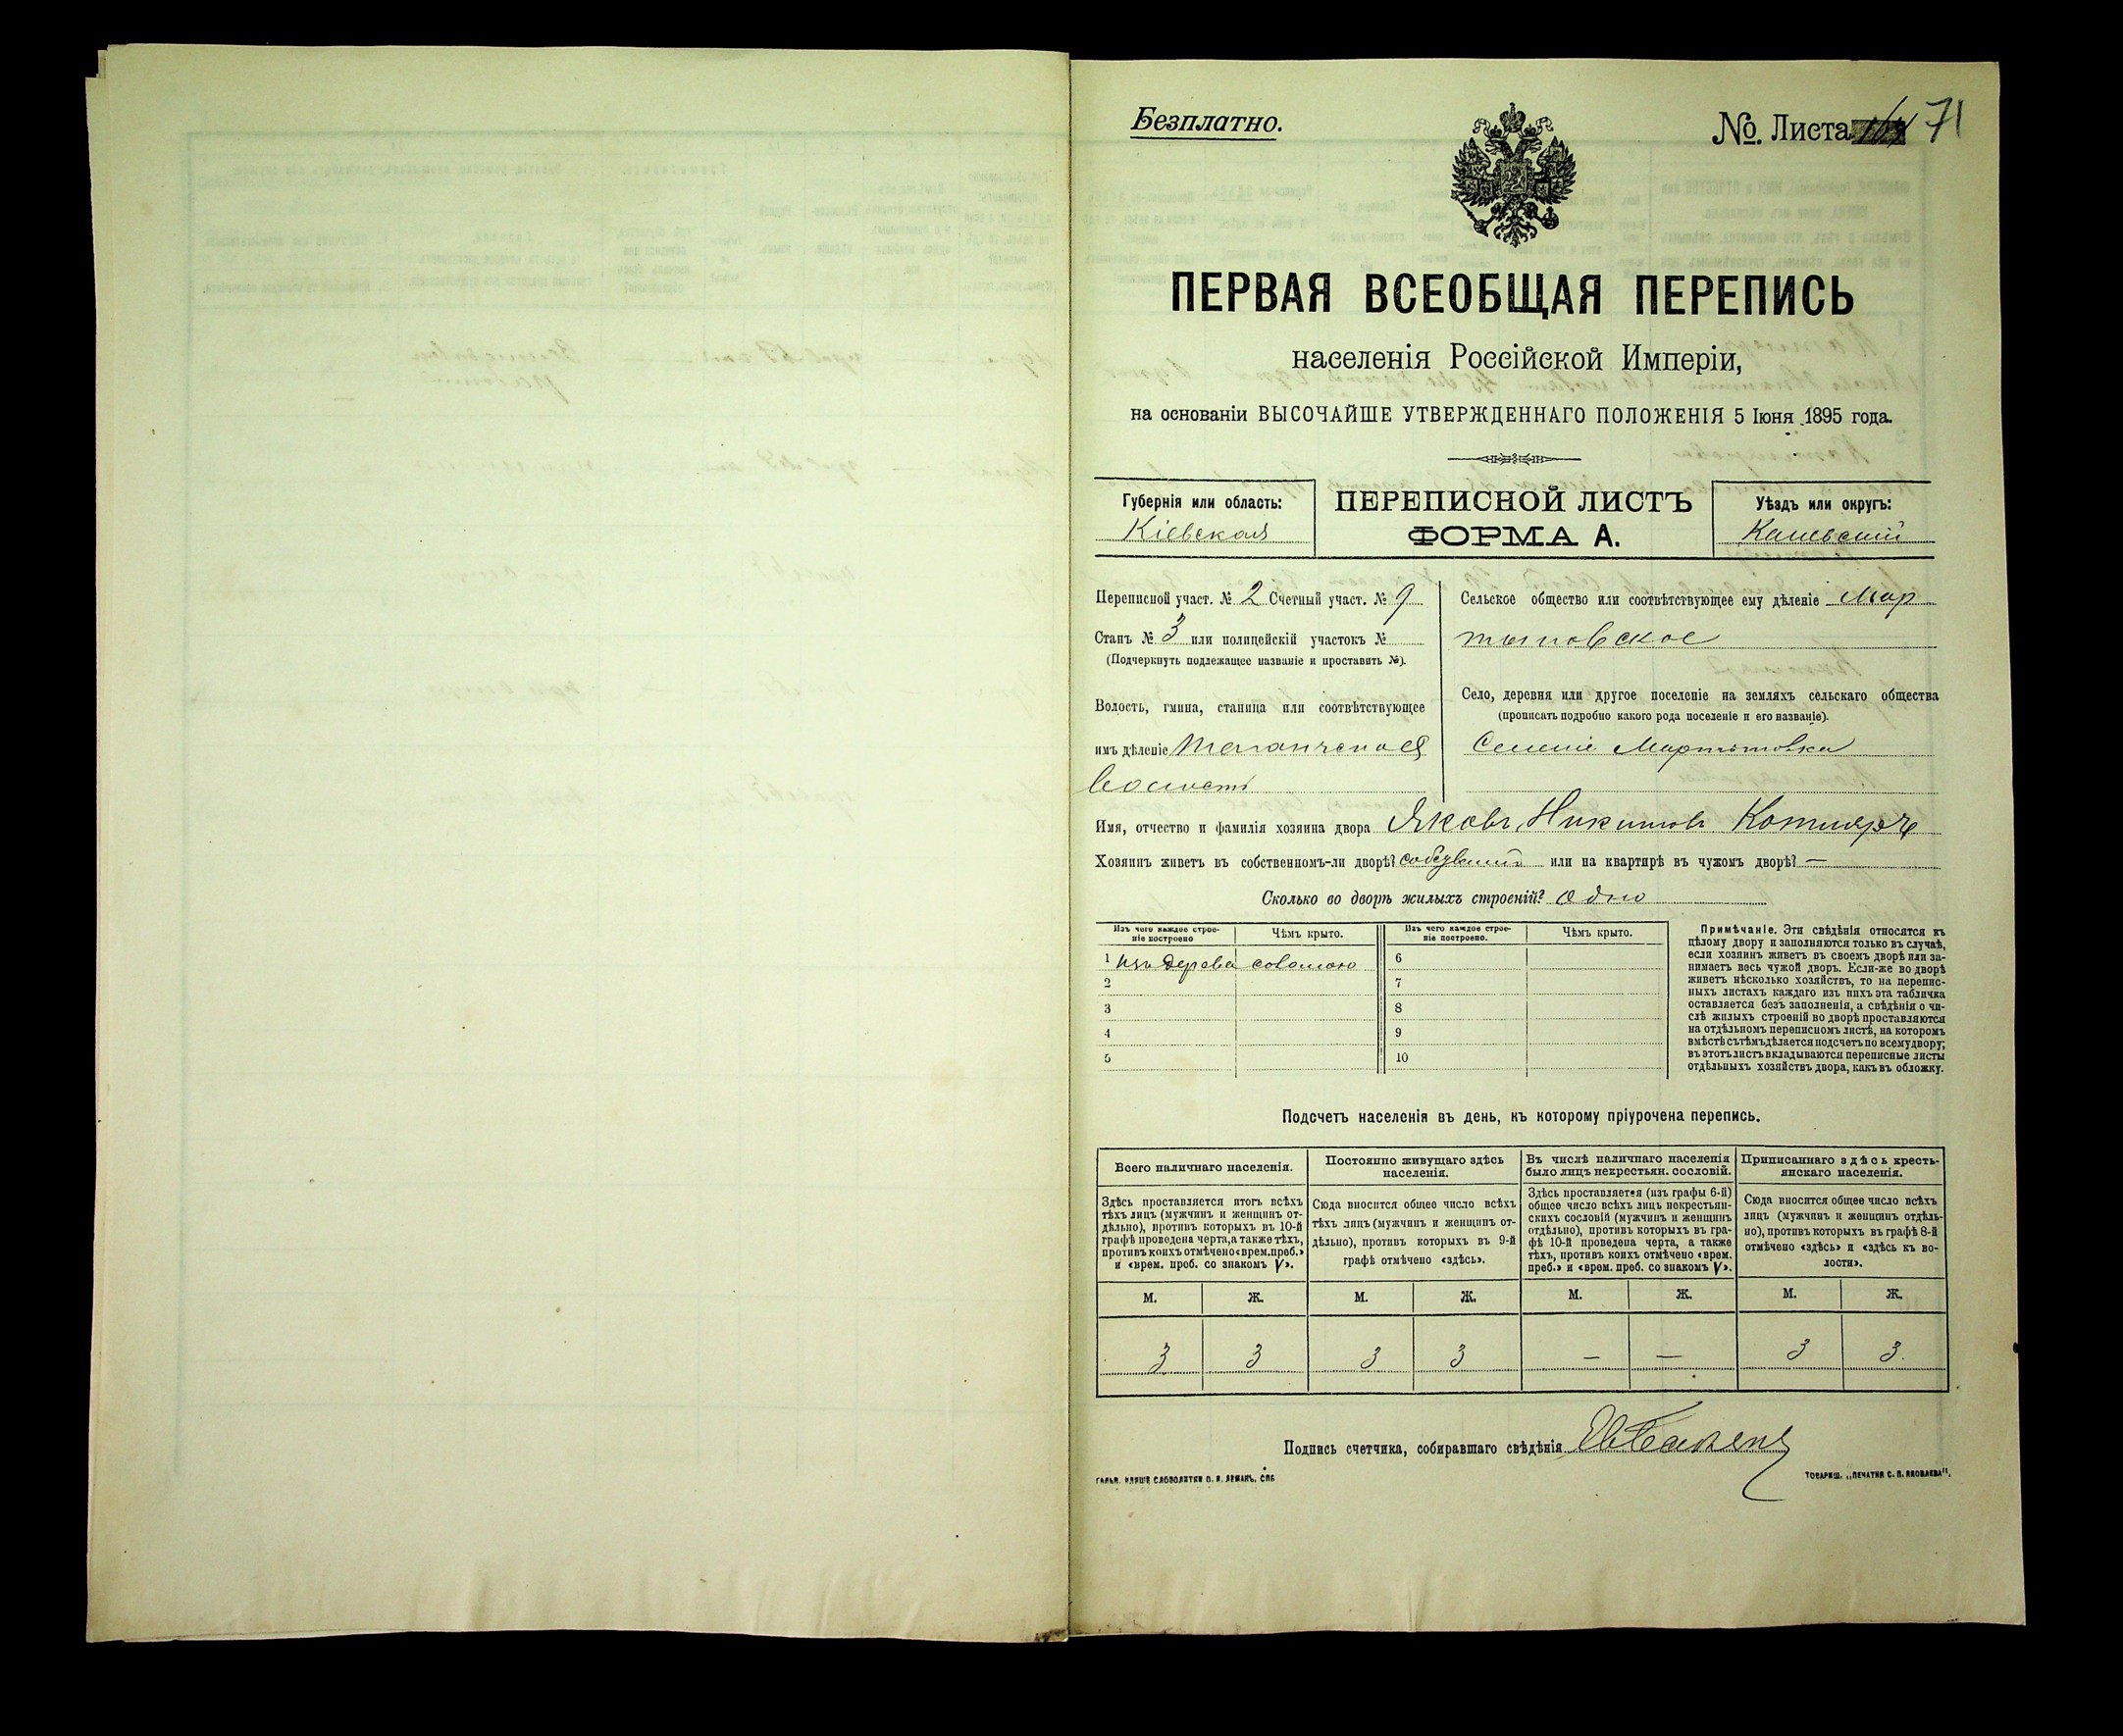 Безплатно.
№ Листа 71
ПЕРВАЯ ВСЕОБЩАЯ ПЕРЕПИСЬ
населенія Россійской Имперіи,
на основаніи ВЫСОЧАЙШЕ УТВЕРЖДЕННАГО ПОЛОЖЕНІЯ 5 Іюня 1895 года.
Губернія или область:
Кіевская
ПЕРЕПИСНОЙ ЛИСТЪ
ФОРМА А.
Уѣздъ или округъ:
Каневскій
Переписной участ. № 2 Счетный участ. № 9
Станъ № 3 или полицейскій участокъ №
(Подчеркнуть подлежащее названіе и проставить №).
Волость, гмина, станица или соотвѣтствующее
имъ дѣленіе Таганчская
волость
Сельское общество или соотвѣтствующее ему дѣленіе Мар
тыновское
Село, деревня или другое поселеніе на земляхъ сельскаго общества
(прописать подробно какого рода поселеніе и его названіе).
Селеніе
Имя, отчество и фамилія хозяина двора Яковъ Никитовъ Котляръ
Хозяинъ живетъ въ собственномъ-ли дворѣ? или на квартирѣ въ чужомъ дворѣ? —
Сколько во дворѣ жилыхъ строеній? Одно
Изъ чего каждое строе-
ніе построено
Чѣмъ крыто.
Изъ чего каждое строе-
ніе построено.
Чѣмъ крыто.
1 Изъ дерева соломою
2
3
4
5
6
7
8
9
10
Примѣчаніе. Эти свѣдѣнія относятся къ
цѣлому двору и заполняются только въ случаѣ,
если хозяинъ живетъ въ своемъ дворѣ или за-
нимаетъ весь чужой дворъ. Если-же во дворѣ
живетъ нѣсколько хозяйствъ, то на перепис-
ныхъ листахъ каждаго изъ нихъ эта табличка
оставляется безъ заполненія, а свѣдѣнія о чи-
слѣ жилыхъ строеній во дворѣ проставляются
на отдѣльномъ переписномъ листѣ, на которомъ
вмѣстѣ съ тѣмъ дѣлается подсчетъ по всему двору;
въ этотъ листъ вкладываются переписные листы
отдѣльныхъ хозяйствъ двора, какъ въ обложку.
Подсчетъ населенія въ день, къ которому пріурочена перепись.
Всего наличнаго населенія.
Здѣсь проставляется итогъ всѣхъ
тѣхъ лицъ (мужчинъ и женщинъ от-
дѣльно), противъ которыхъ въ 10-й
графѣ проведена черта, а также тѣхъ,
противъ коихъ отмѣчено «врем. преб.»
и «врем. преб. со знакомъ V».
Постоянно живущаго здѣсь
населенія.
Сюда вносится общее число всѣхъ
тѣхъ лицъ (мужчинъ и женщинъ от-
дѣльно), противъ которыхъ въ 9-й
графѣ отмѣчено «здѣсь».
Въ числѣ наличнаго населенія
было лицъ некрестьян. сословій.
Здѣсь проставляется (изъ графы 6-й)
общее число всѣхъ лицъ некрестьян-
скихъ сословій (мужчинъ и женщинъ
отдѣльно), противъ которыхъ въ гра-
фѣ 10-й проведена черта, а также
тѣхъ, противъ коихъ отмѣчено «врем.
преб.» и «врем. преб. со знакомъ V».
Приписаннаго здѣсь кресть-
янскаго населенія.
Сюда вносится общее число всѣхъ
лицъ (мужчинъ и женщинъ отдѣль-
но), противъ которыхъ въ графѣ 8-й
отмѣчено «здѣсь» и «здѣсь къ во-
лости».
М. Ж. М. Ж. М. Ж. М. Ж.
3 3 3 3 — — 3 3.
Подпись счетчика, собиравшаго свѣдѣнія
ТОВАРИЩ. „ПЕЧАТНЯ С. П. ЯКОВЛЕВА".